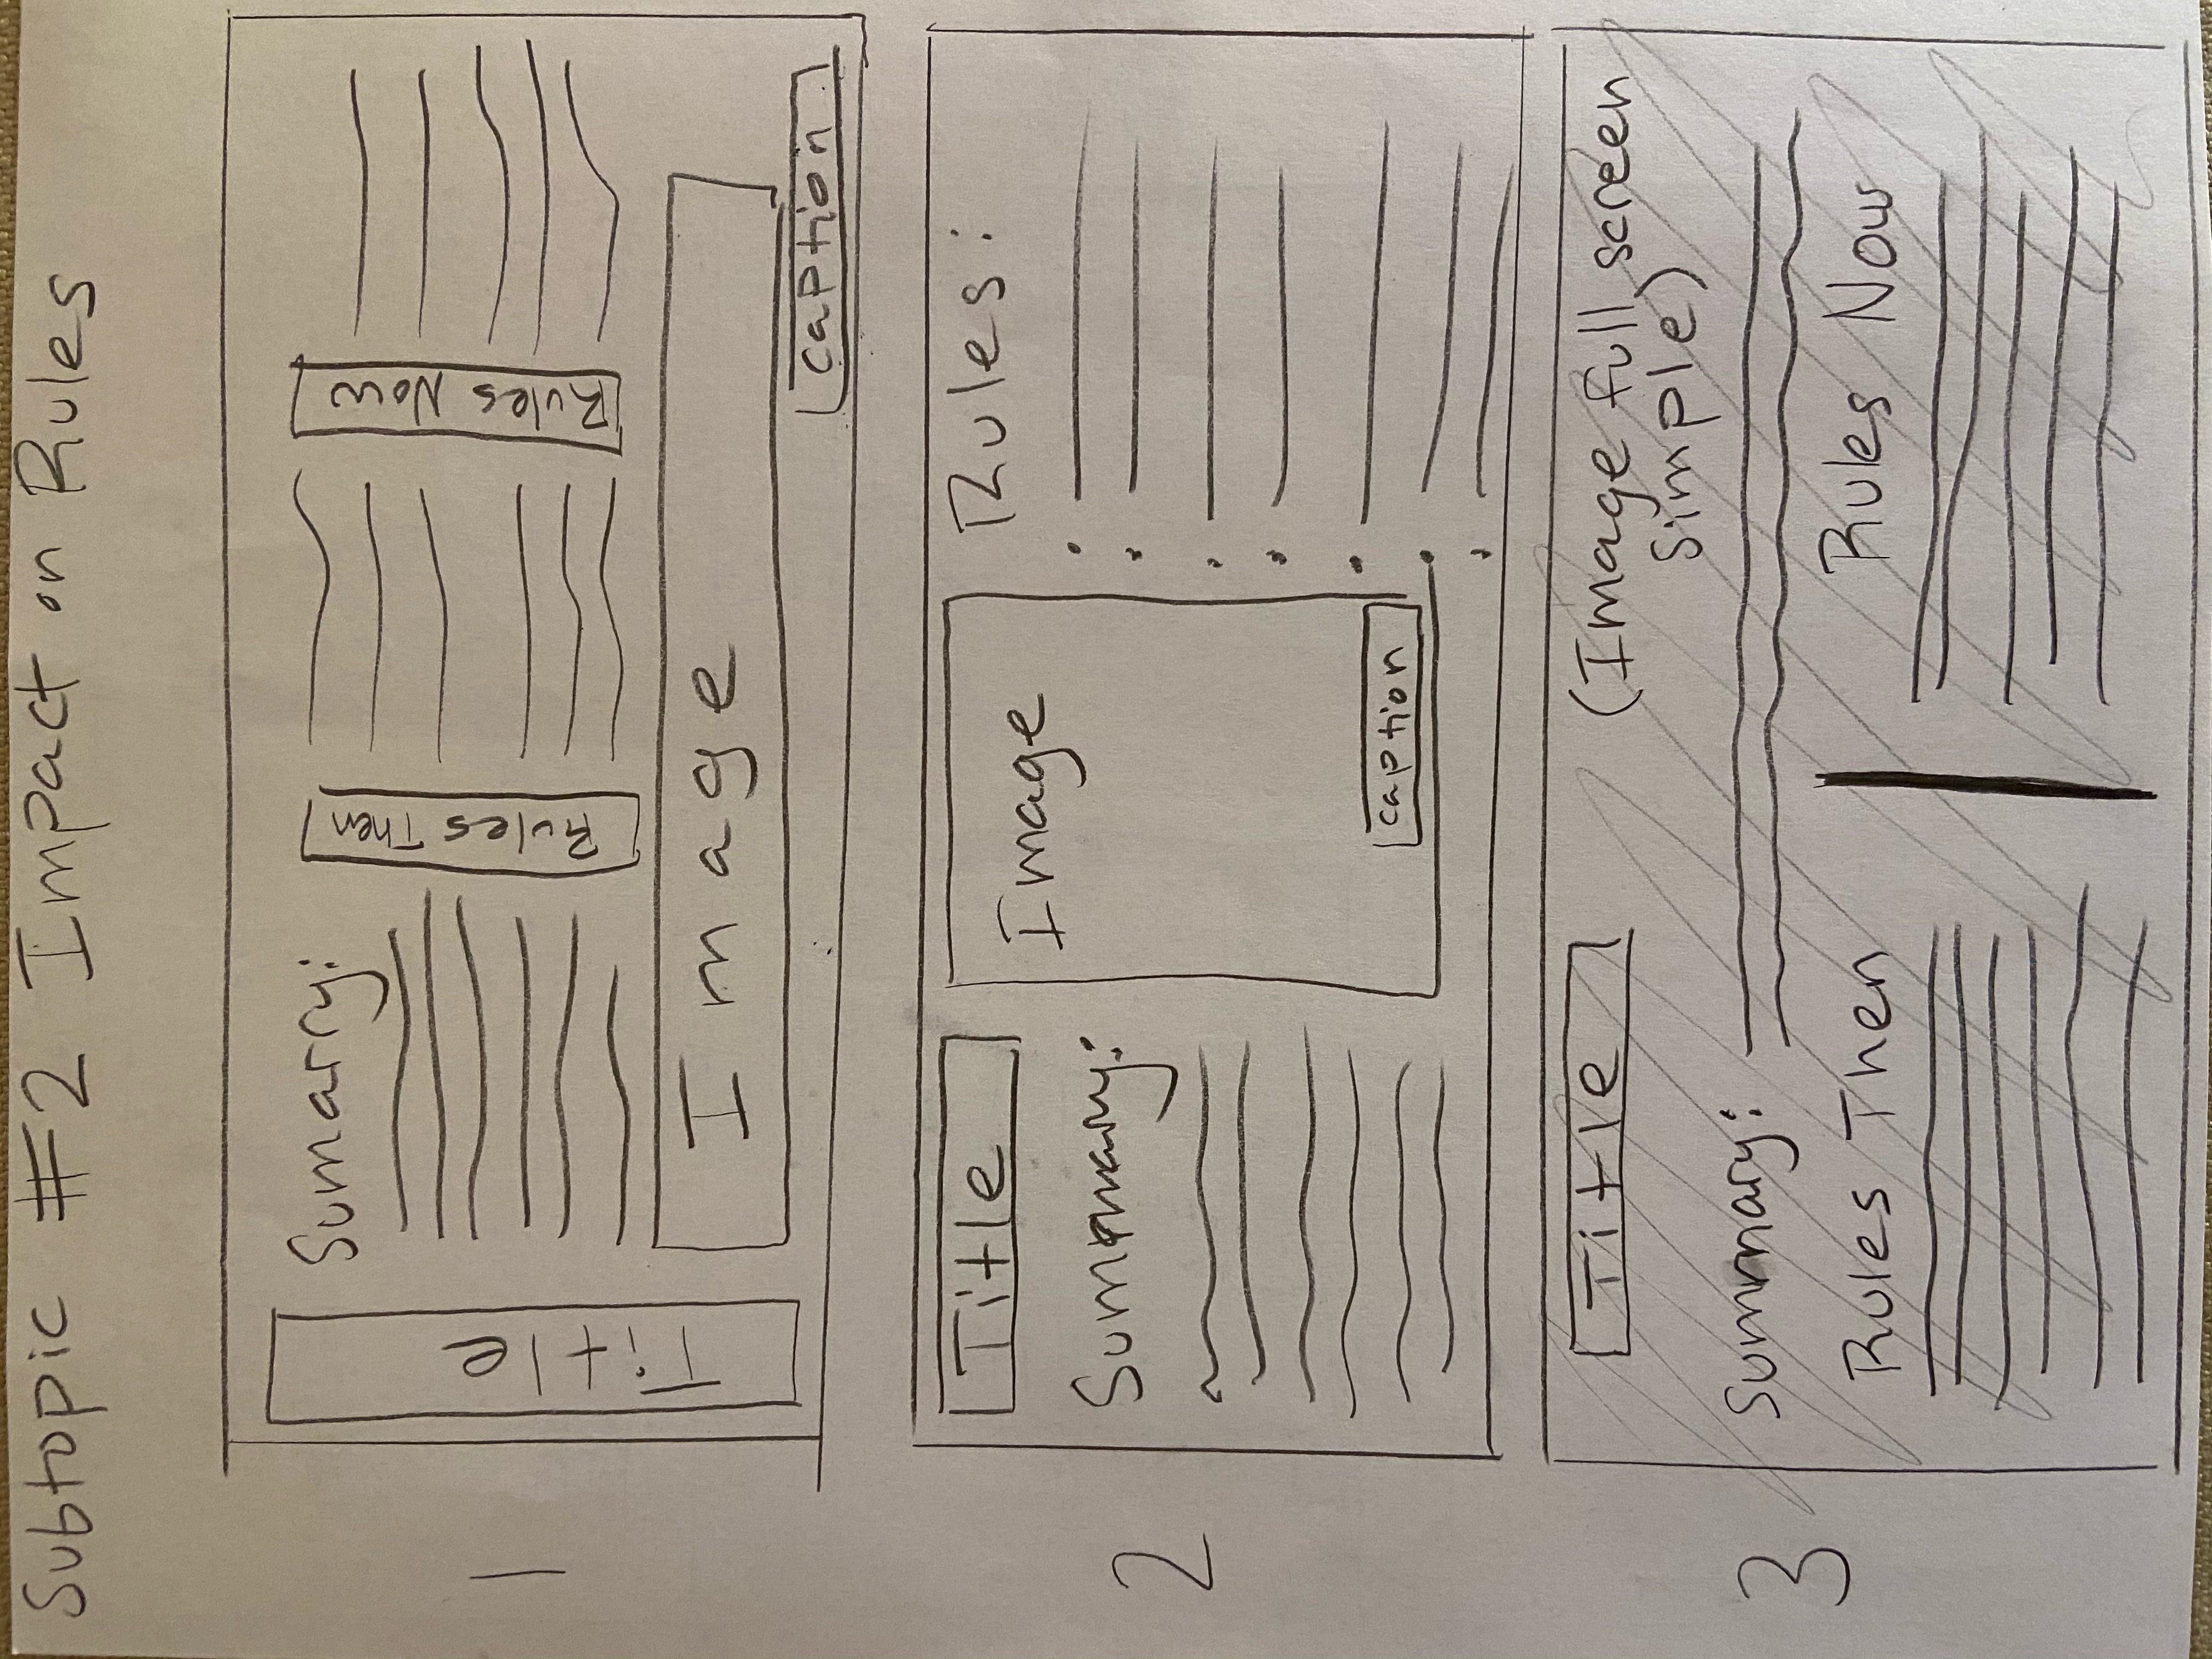 Subtopic #2 Impact on Rules
1
Title
Sumarry:
Rules Then
Rules Now
Image
caption
2
Title
Summary:
Image
caption
Rules:
3
Title
(Image full screen
simple)
Summary:
Rules Then
Rules Now